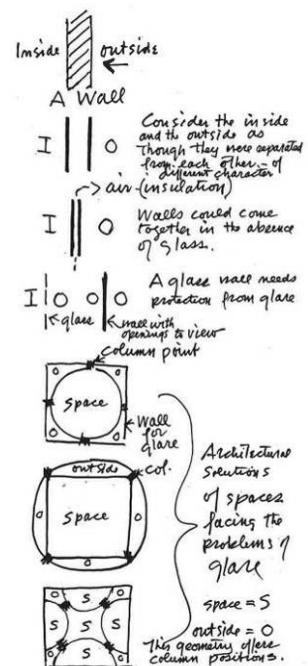 Inside outside
A Wall
I O
Consider the inside
and the outside as
Though they were separated
from each other – of
different character
air (insulation)
I O
Walls could come
together in the absence
of glass.
I O O O
A glass wall needs
protection from glare
glass
wall with
openings to view
column point
O O
space
O O
Wall
for
glare
outside
col.
O O
space
O
Architectural
solutions
of spaces
facing the
problems of
glare
space = S
outside = O
O S O
S S S
O S O
This geometry offers
column positions.